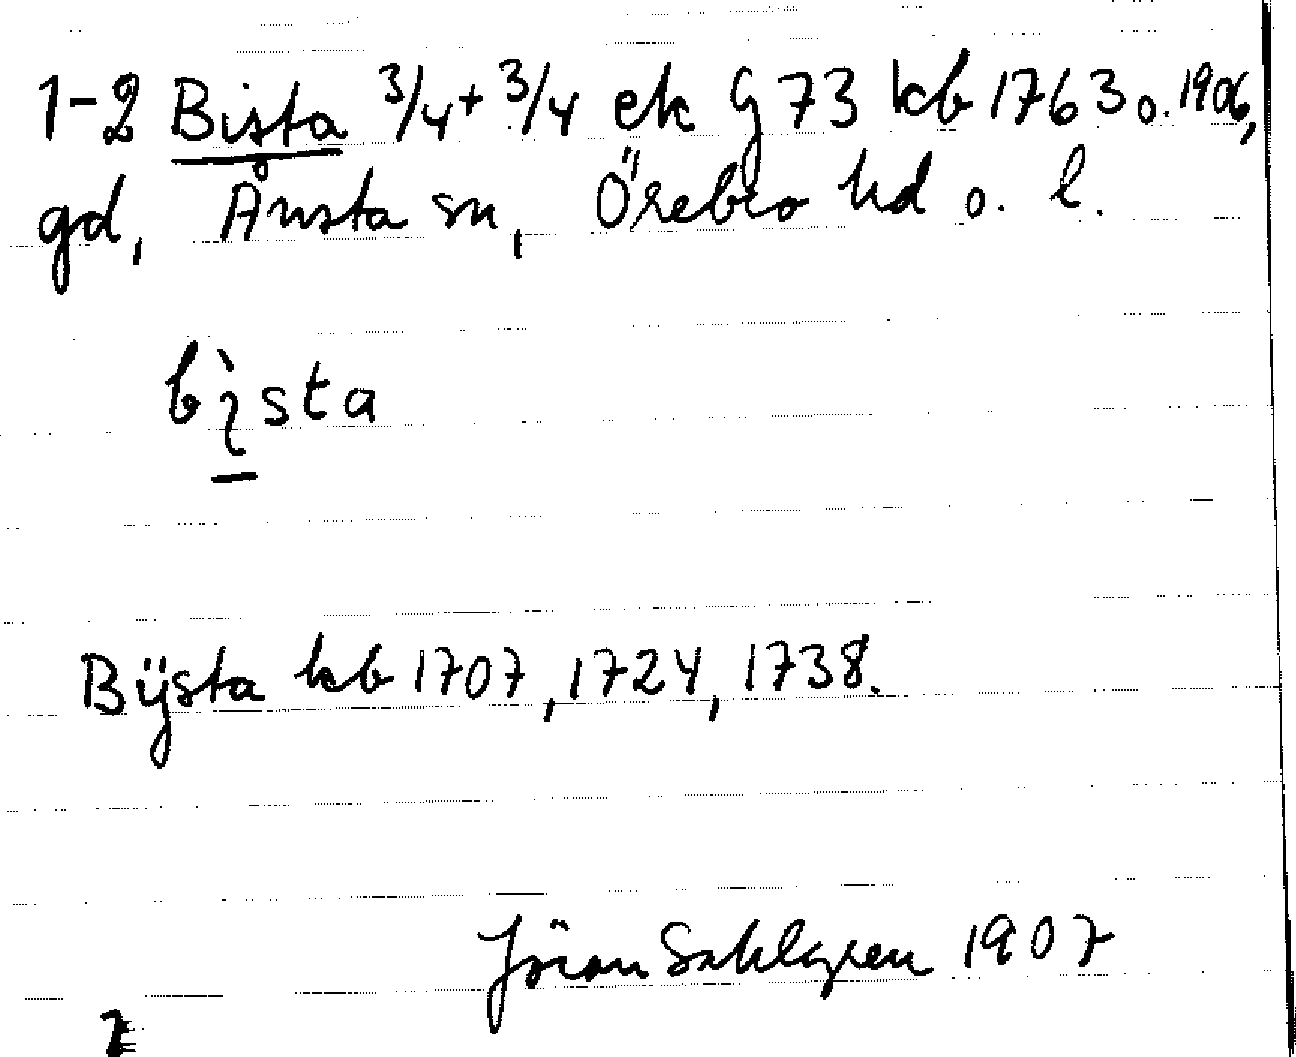 1-2 Bista 3/4 + 3/4 ek G 73 kb 1763 o. 1906,
gd, Ånsta sn, Örebro hd o. l.
bìsta
Bÿsta kb 1707, 1724, 1738.
Jöran Sahlgren 1907